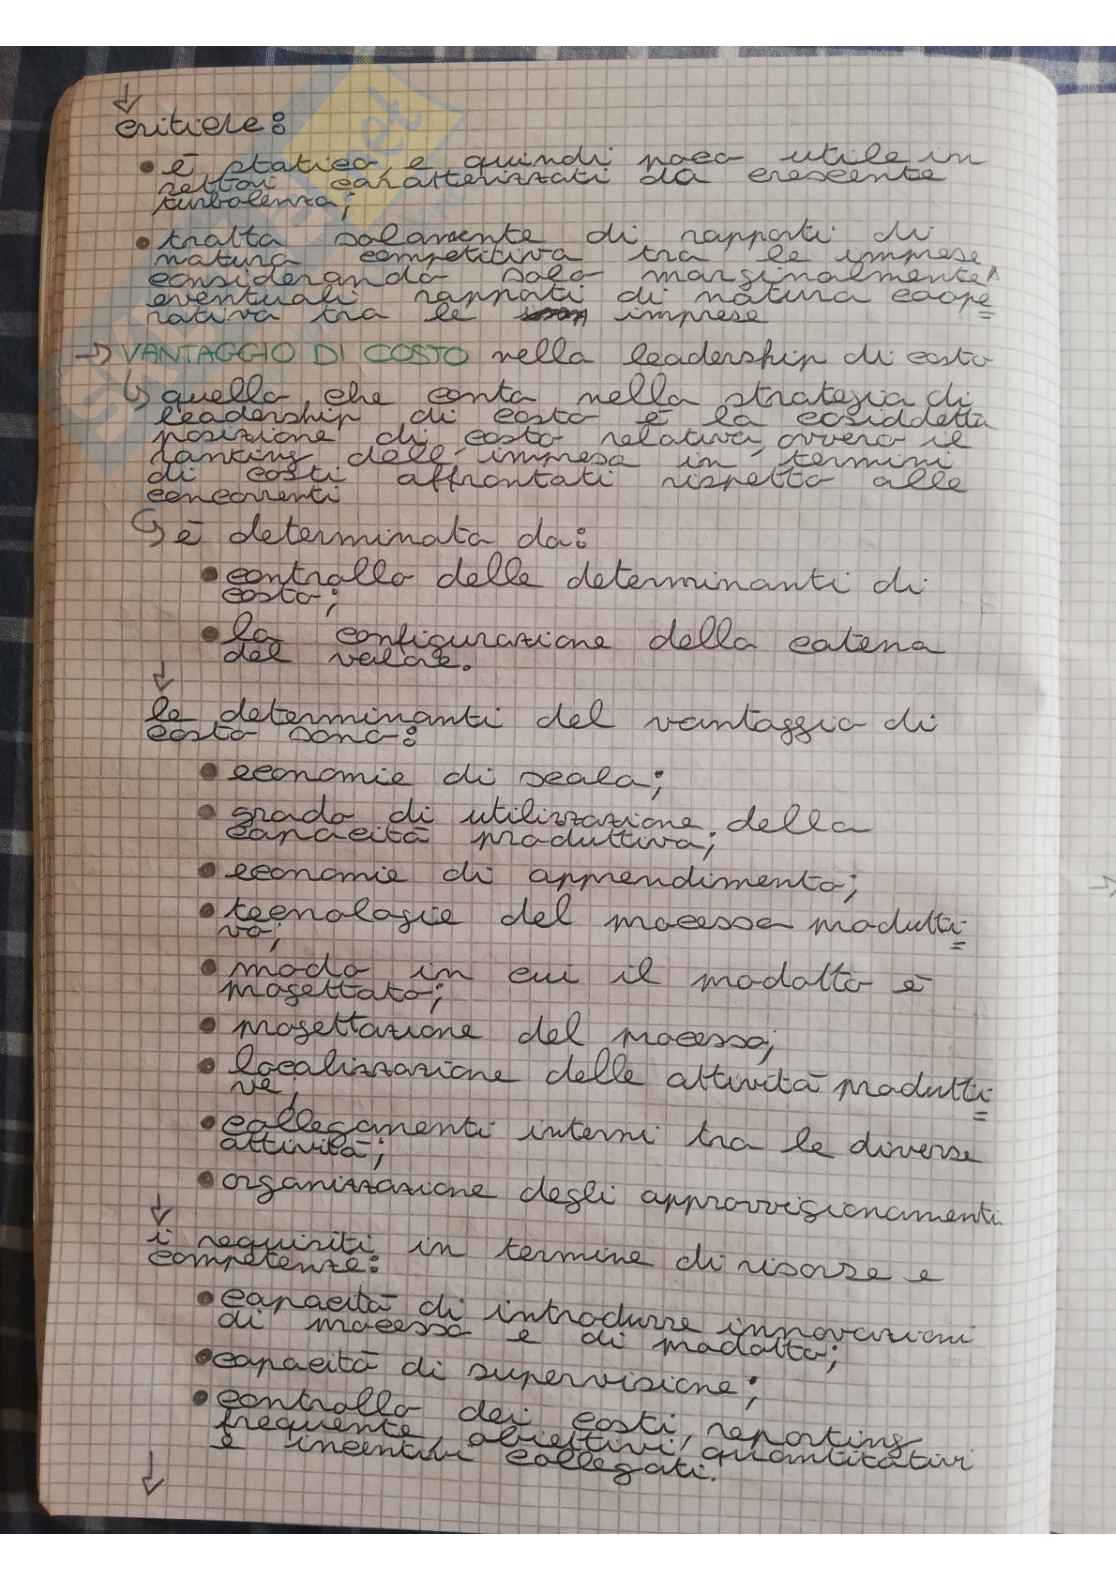 ↓
critiche:
• è statico, e quindi poco utile in
settori caratterizzati da crescente
turbolenza;
• tratta solamente di rapporti di
natura competitiva tra le imprese
considerando solo marginalmente
eventuali rapporti di natura coope
rativa tra le imprese
→ VANTAGGIO DI COSTO nella leadership di costo
↳ quello che conta nella strategia di
leadership di costo è la cosiddetta
posizione di costo relativa, ovvero il
ranking dell'impresa in termini
di costi affrontati rispetto alle
concorrenti
↳ è determinata da:
• controllo delle determinanti di
costo;
• la configurazione della catena
del valore.
↓
le determinanti del vantaggio di
costo sono:
• economie di scala;
• grado di utilizzazione della
capacità produttiva;
• economie di apprendimento;
• tecnologie del processo produtti=
vo;
• modo in cui il prodotto è
progettato;
• progettazione del processo;
• localizzazione delle attività produtti=
ve;
• collegamenti interni tra le diverse
attività;
• organizzazione degli approvvigionamenti
↓
i requisiti in termine di risorse e
competenze:
• capacità di introdurre innovazioni
di processo e di prodotto;
• capacità di supervisione;
• controllo dei costi, reporting
frequente, obiettivi quantitativi
e incentivi collegati.
↓